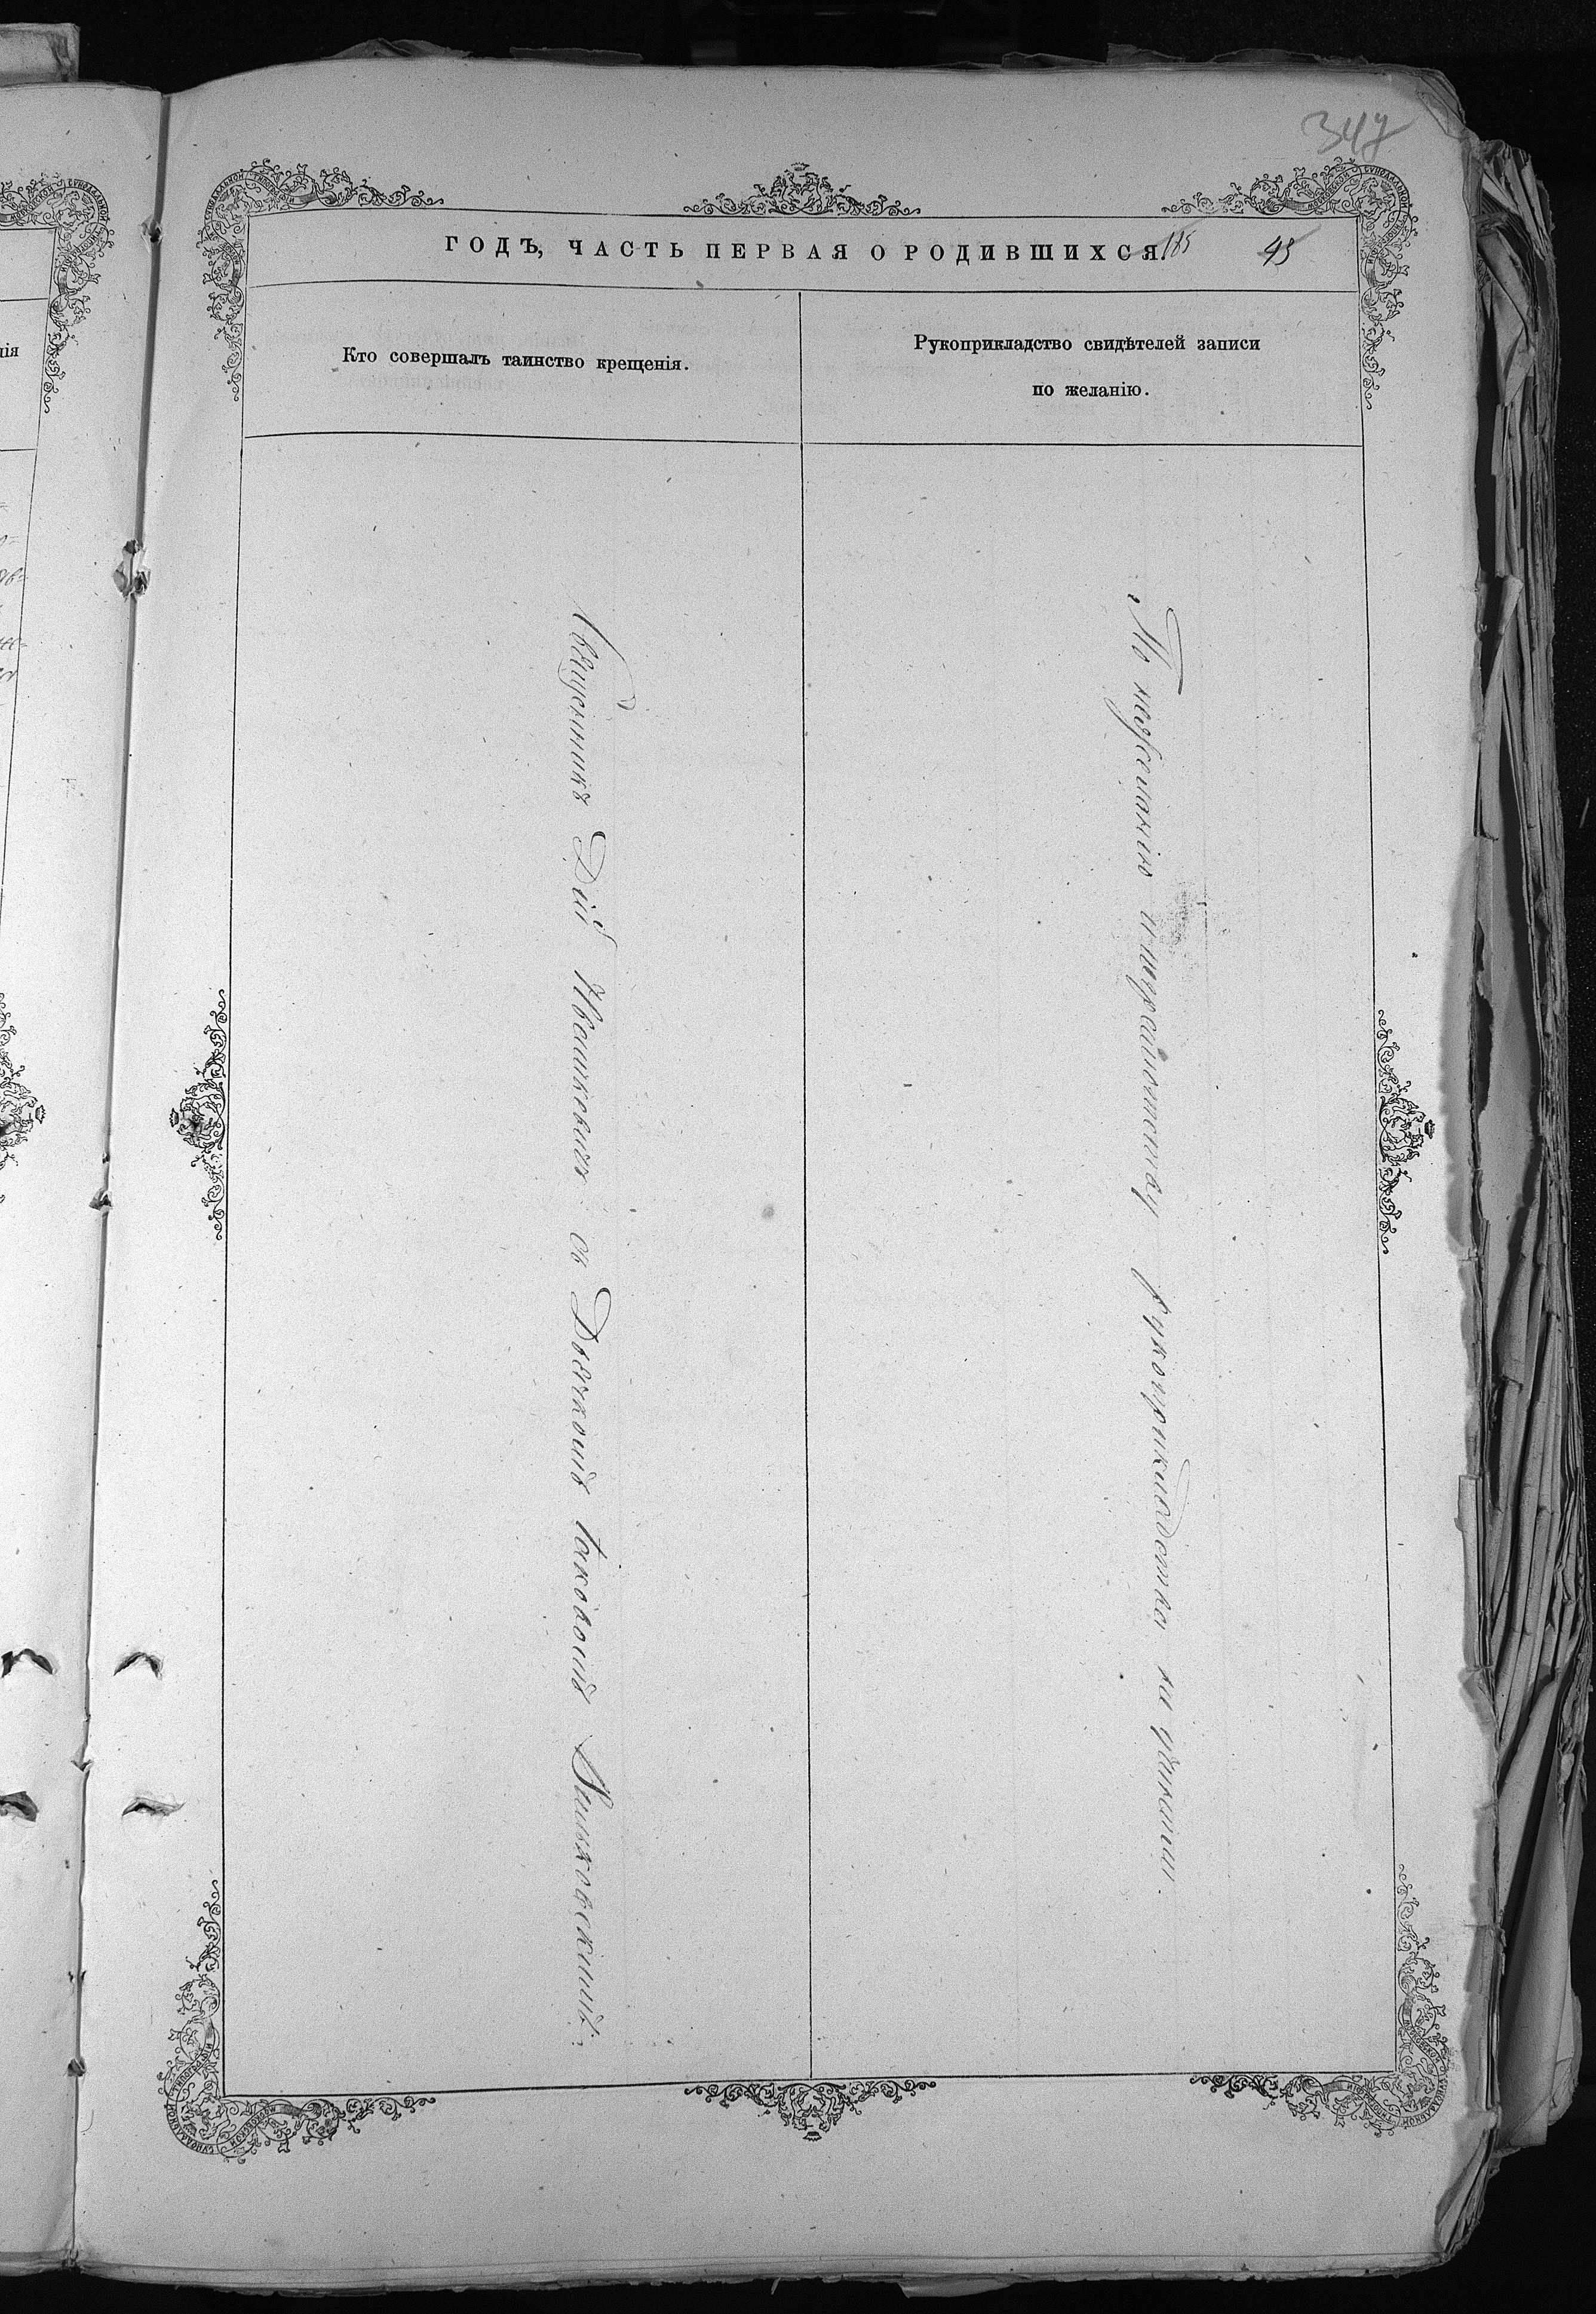 347
ГОДЪ, ЧАСТЬ ПЕРВАЯ О РОДИВШИХСЯ. 185 93
Кто совершалъ таинство крещенія.
Рукоприкладство свидѣтелей записи
по желанію.
Священникъ Дій Ивашкевичъ съ Дьячкомъ Іаковомъ
По нежеланію и неграмотству рукоприкладства не учинили.